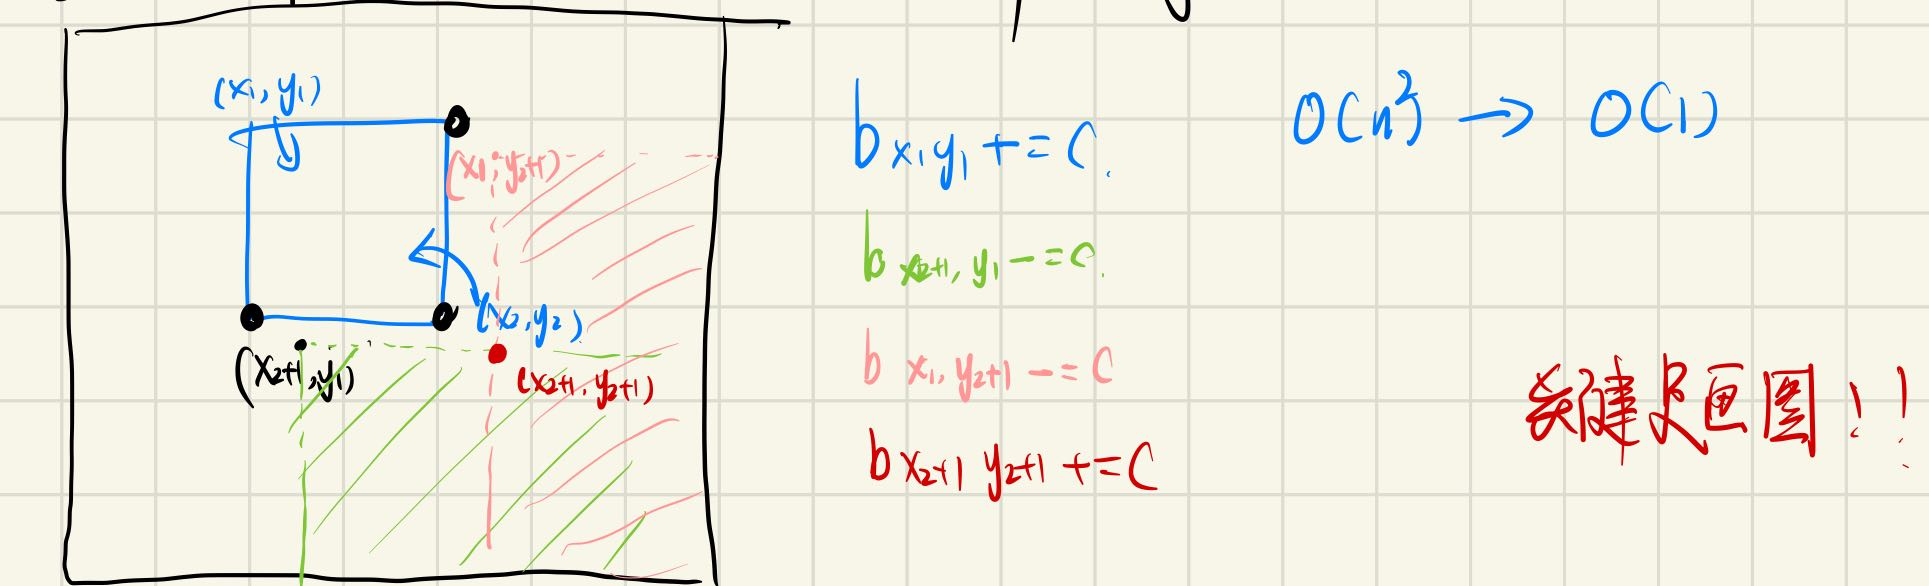 (x₁, y₁)
(x₁, y₂+1)
(x₂, y₂)
(x₂+1, y₁)
(x₂+1, y₂+1)
b x₁y₁ += C.
b x₂+1, y₁ -= C.
b x₁, y₂+1 -= C
b x₂+1 y₂+1 += C
O(n²) → O(1)
关键是画图!!